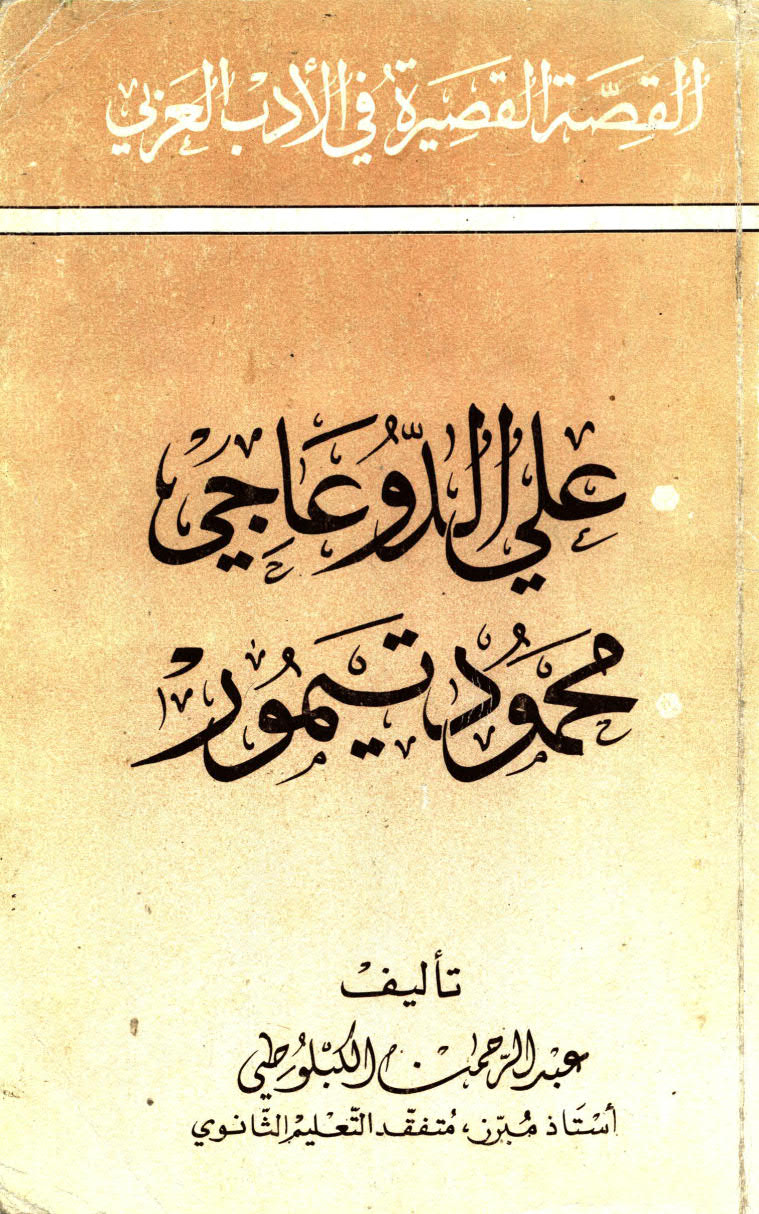 القِصَّة القَصِيرَة في الأدب العَرَبي
علي الدّوعَاجي
محمُود تيمُور
تأليف
عبد الرحمان الكبلوطي
أسْتَاذ مُبرّز، مُتفقّد التّعْليم الثّانوي